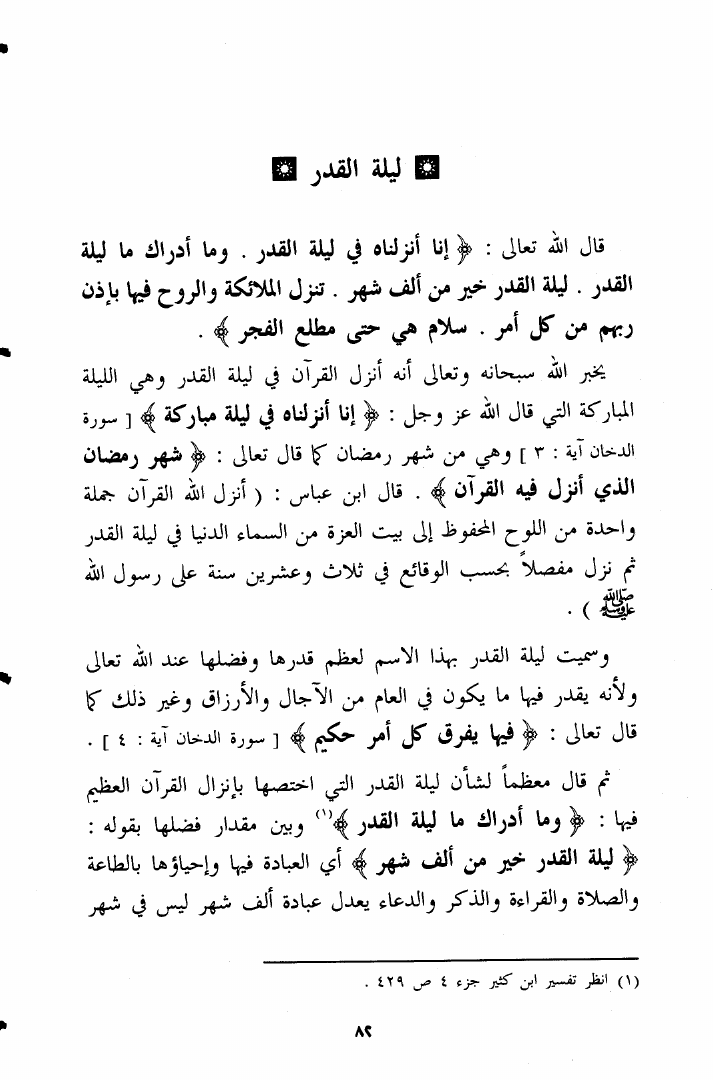 ليلة القدر
قال الله تعالى : ﴿ إنا أنزلناه في ليلة القدر . وما أدراك ما ليلة
القدر . ليلة القدر خير من ألف شهر . تنزل الملائكة والروح فيها بإذن
ربهم من كل أمر . سلام هي حتى مطلع الفجر ﴾ .
يخبر الله سبحانه وتعالى أنه أنزل القرآن في ليلة القدر وهي الليلة
المباركة التي قال الله عز وجل : ﴿ إنا أنزلناه في ليلة مباركة ﴾ [ سورة
الدخان آية : ٣ ] وهي من شهر رمضان كما قال تعالى : ﴿ شهر رمضان
الذي أنزل فيه القرآن ﴾ . قال ابن عباس : ( أنزل الله القرآن جملة
واحدة من اللوح المحفوظ إلى بيت العزة من السماء الدنيا في ليلة القدر
ثم نزل مفصلاً بحسب الوقائع في ثلاث وعشرين سنة على رسول الله
ﷺ ) .
وسميت ليلة القدر بهذا الاسم لعظم قدرها وفضلها عند الله تعالى
ولأنه يقدر فيها ما يكون في العام من الآجال والأرزاق وغير ذلك كما
قال تعالى : ﴿ فيها يفرق كل أمر حكيم ﴾ [ سورة الدخان آية : ٤ ] .
ثم قال معظماً لشأن ليلة القدر التي اختصها بإنزال القرآن العظيم
فيها : ﴿ وما أدراك ما ليلة القدر ﴾(١) وبين مقدار فضلها بقوله :
﴿ ليلة القدر خير من ألف شهر ﴾ أي العبادة فيها وإحياؤها بالطاعة
والصلاة والقراءة والذكر والدعاء يعدل عبادة ألف شهر ليس في شهر
(١) انظر تفسير ابن كثير جزء ٤ ص ٤٢٩ .
٨٢